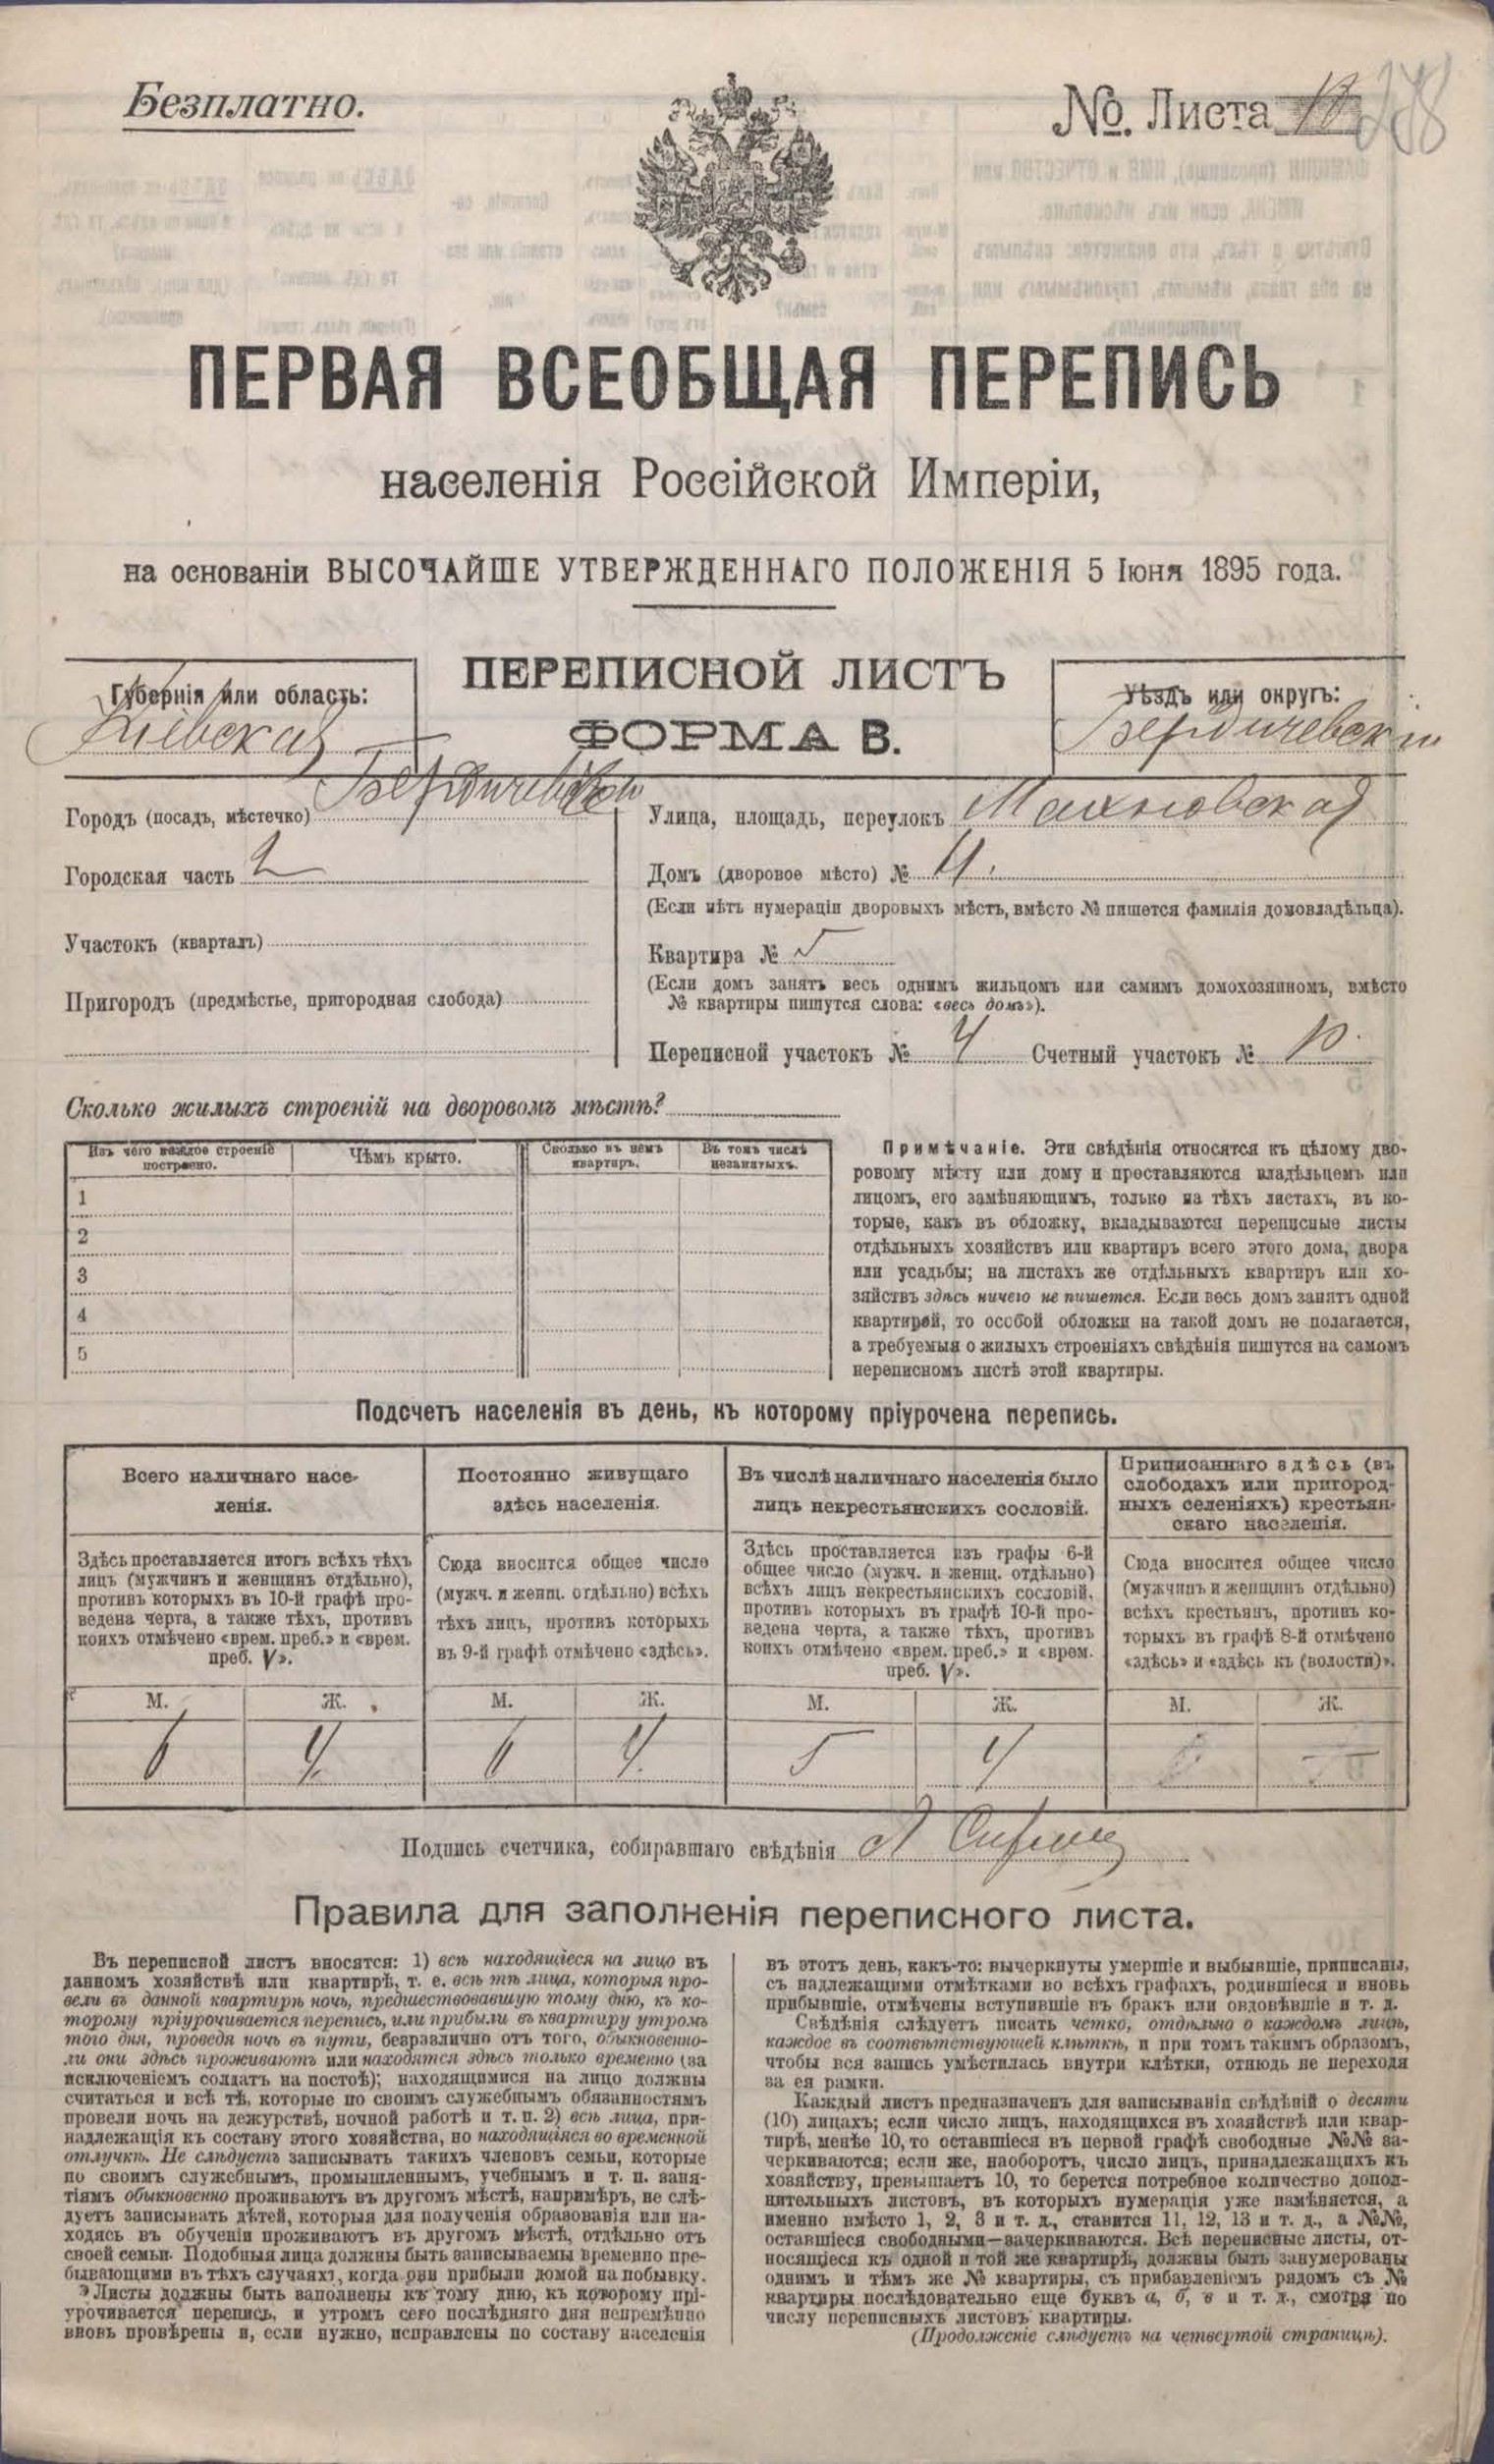 Безплатно.
№. Листа 10
278
ПЕРВАЯ ВСЕОБЩАЯ ПЕРЕПИСЬ
населенія Россійской Имперіи,
на основаніи ВЫСОЧАЙШЕ УТВЕРЖДЕННАГО ПОЛОЖЕНІЯ 5 Іюня 1895 года.
ПЕРЕПИСНОЙ ЛИСТЪ
ФОРМА В.
Губернія или область:
Кіевская
Уѣздъ или округъ:
Бердичевскій
Городъ (посадъ, мѣстечко)
Городская часть 2
Участокъ (кварталъ)
Пригородъ (предмѣстье, пригородная слобода)
Улица, площадь, переулокъ Махновская
Домъ (дворовое мѣсто) № 4.
(Если нѣтъ нумераціи дворовыхъ мѣстъ, вмѣсто № пишется фамилія домовладѣльца).
Квартира № 5
(Если домъ занятъ весь однимъ жильцомъ или самимъ домохозяиномъ, вмѣсто
№ квартиры пишутся слова: «весь домъ»).
Переписной участокъ № 4 Счетный участокъ № 10.
Сколько жилыхъ строеній на дворовомъ мѣстѣ?
Изъ чего каждое строеніе
построено.
Чѣмъ крыто.
Сколько въ немъ
квартиръ.
Въ томъ числѣ
незанятыхъ.
1
2
3
4
5
Примѣчаніе. Эти свѣдѣнія относятся къ цѣлому дво-
ровому мѣсту или дому и проставляются владѣльцемъ или
лицомъ, его замѣняющимъ, только на тѣхъ листахъ, въ ко-
торые, какъ въ обложку, вкладываются переписные листы
отдѣльныхъ хозяйствъ или квартиръ всего этого дома, двора
или усадьбы; на листахъ же отдѣльныхъ квартиръ или хо-
зяйствъ здѣсь ничего не пишется. Если весь домъ занятъ одной
квартирой, то особой обложки на такой домъ не полагается,
а требуемыя о жилыхъ строеніяхъ свѣдѣнія пишутся на самомъ
переписномъ листѣ этой квартиры.
Подсчетъ населенія въ день, къ которому пріурочена перепись.
Всего наличнаго насе-
ленія.
Постоянно живущаго
здѣсь населенія.
Въ числѣ наличнаго населенія было
лицъ некрестьянскихъ сословій.
Приписаннаго здѣсь (въ
слободахъ или пригород-
ныхъ селеніяхъ) крестьян-
скаго населенія.
Здѣсь проставляется итогъ всѣхъ тѣхъ
лицъ (мужчинъ и женщинъ отдѣльно),
противъ которыхъ въ 10-й графѣ про-
ведена черта, а также тѣхъ, противъ
коихъ отмѣчено «врем. преб.» и «врем.
преб. V».
Сюда вносится общее число
(мужч. и женщ. отдѣльно) всѣхъ
тѣхъ лицъ, противъ которыхъ
въ 9-й графѣ отмѣчено «здѣсь».
Здѣсь проставляется изъ графы 6-й
общее число (мужч. и женщ. отдѣльно)
всѣхъ лицъ некрестьянскихъ сословій,
противъ которыхъ въ графѣ 10-й про-
ведена черта, а также тѣхъ, противъ
коихъ отмѣчено «врем. преб.» и «врем.
преб. V».
Сюда вносится общее число
(мужчинъ и женщинъ отдѣльно)
всѣхъ крестьянъ, противъ ко-
торыхъ въ графѣ 8-й отмѣчено
«здѣсь» и «здѣсь къ (волости)».
М. Ж. М. Ж. М. Ж. М. Ж.
6 4. 6 4. 5 4
Подпись счетчика, собиравшаго свѣдѣнія
Правила для заполненія переписного листа.
Въ переписной листъ вносятся: 1) всѣ находящіеся на лицо въ
данномъ хозяйствѣ или квартирѣ, т. е. всѣ тѣ лица, которыя про-
вели въ данной квартирѣ ночь, предшествовавшую тому дню, къ ко-
торому пріурочивается перепись, или прибыли въ квартиру утромъ
того дня, проведя ночь въ пути, безразлично отъ того, обыкновенно-
ли они здѣсь проживаютъ или находятся здѣсь только временно (за
исключеніемъ солдатъ на постоѣ); находящимися на лицо должны
считаться и всѣ тѣ, которые по своимъ служебнымъ обязанностямъ
провели ночь на дежурствѣ, ночной работѣ и т. п. 2) всѣ лица, при-
надлежащія къ составу этого хозяйства, но находящіяся во временной
отлучкѣ. Не слѣдуетъ записывать такихъ членовъ семьи, которые
по своимъ служебнымъ, промышленнымъ, учебнымъ и т. п. заня-
тіямъ обыкновенно проживаютъ въ другомъ мѣстѣ, напримѣръ, не слѣ-
дуетъ записывать дѣтей, которыя для полученія образованія или на-
ходясь въ обученіи проживаютъ въ другомъ мѣстѣ, отдѣльно отъ
своей семьи. Подобныя лица должны быть записываемы временно пре-
бывающими въ тѣхъ случаяхъ, когда они прибыли домой на побывку.
Листы должны быть заполнены къ тому дню, къ которому прі-
урочивается перепись, и утромъ сего послѣдняго дня непремѣнно
вновь провѣрены и, если нужно, исправлены по составу населенія
въ этотъ день, какъ-то: вычеркнуты умершіе и выбывшіе, приписаны,
съ надлежащими отмѣтками во всѣхъ графахъ, родившіеся и вновь
прибывшіе, отмѣчены вступившіе въ бракъ или овдовѣвшіе и т. д.
Свѣдѣнія слѣдуетъ писать четко, отдѣльно о каждомъ лицѣ,
каждое въ соотвѣтствующей клѣткѣ, и при томъ такимъ образомъ,
чтобы вся запись умѣстилась внутри клѣтки, отнюдь не переходя
за ея рамки.
Каждый листъ предназначенъ для записыванія свѣдѣній о десяти
(10) лицахъ; если число лицъ, находящихся въ хозяйствѣ или квар-
тирѣ, менѣе 10, то оставшіеся въ первой графѣ свободные №№ за-
черкиваются; если же, наоборотъ, число лицъ, принадлежащихъ къ
хозяйству, превышаетъ 10, то берется потребное количество допол-
нительныхъ листовъ, въ которыхъ нумерація уже измѣняется, а
именно вмѣсто 1, 2, 3 и т. д., ставится 11, 12, 13 и т. д., а №№,
оставшіеся свободными—зачеркиваются. Всѣ переписные листы, от-
носящіеся къ одной и той же квартирѣ, должны быть занумерованы
однимъ и тѣмъ же № квартиры, съ прибавленіемъ рядомъ съ №
квартиры послѣдовательно еще буквъ а, б, в и т. д., смотря по
числу переписныхъ листовъ квартиры.
(Продолженіе слѣдуетъ на четвертой страницѣ).